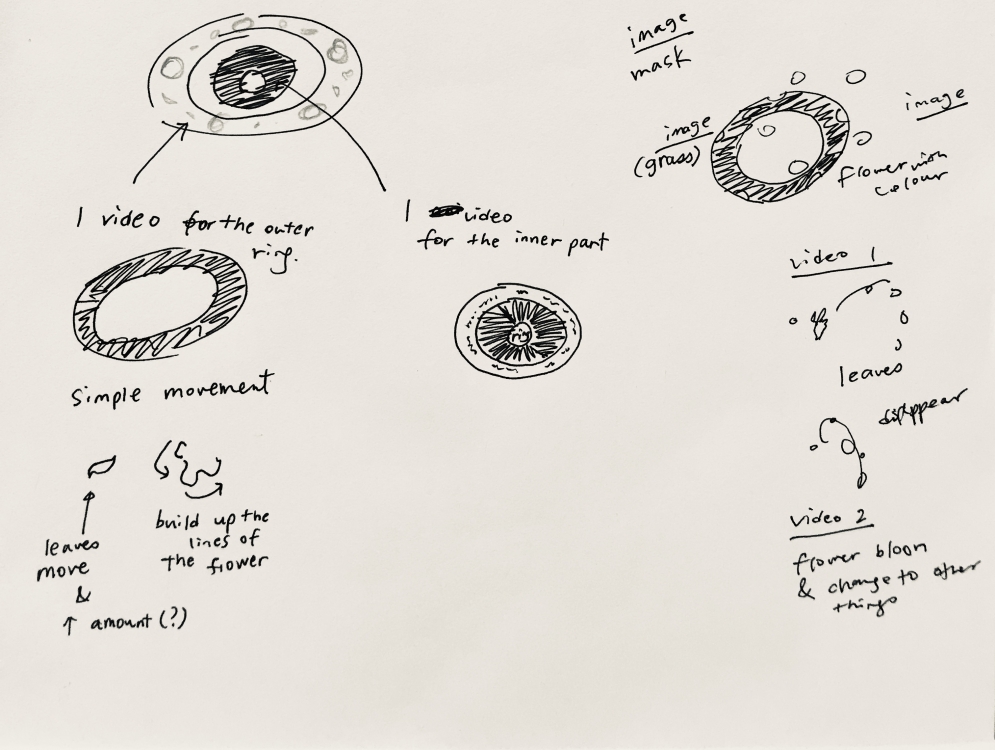 1 video for the outer
ring.
simple movement
leaves
move
&
↑ amount (?)
build up the
lines of
the flower
1 video
for the inner part
image
mask
image
(grass)
image
flower with
colour
video 1
leaves
disappear
video 2
flower bloon
& change to other
things